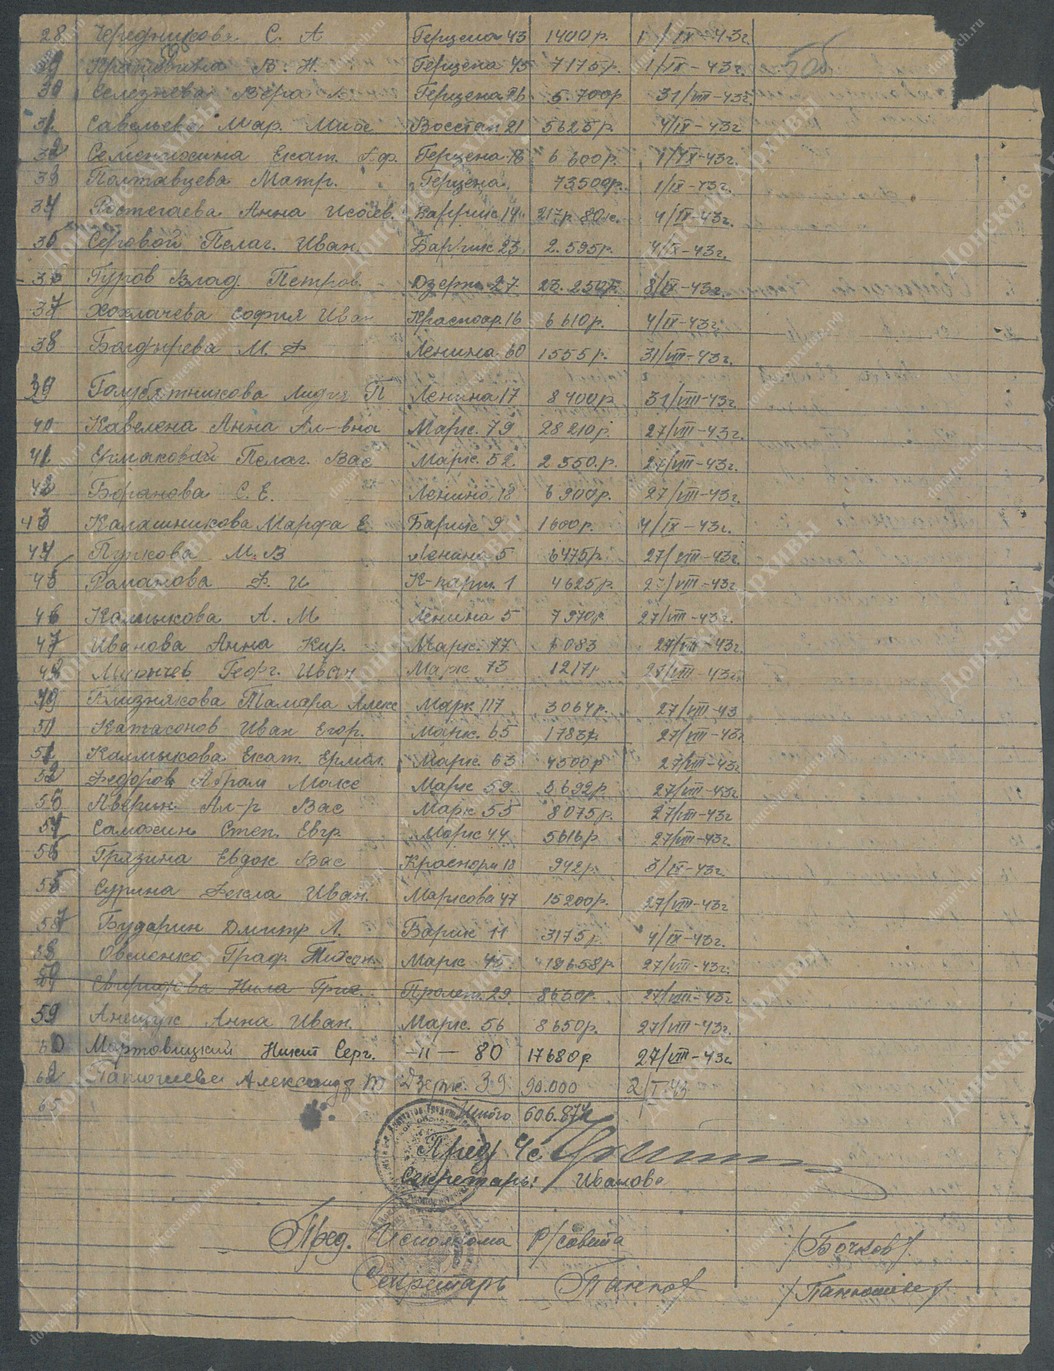 28 Чередников С. А Герцена 43 1400р. 1/IX-43г.
29 В. Н. Герцена 45 7175р. 1/IX-43г. 50б
30 Селезнева Вера Герцена 26 5.700р 31/VIII-43г.
31 Савельева Мар. Восстан 21 5625р. 4/IX-43г.
32 Семенихина Екат. Герцена 18 6600р. 1/IX-43г.
33 Полтавцева Матр. Герцена 1/IX-43г.
34 Растегаева Анна Исаев. Баррик 14 217р 80к. 4/IX-43г.
35 Серговой Пелаг. Иван. Баррик 23 2.595р. 4/IX-43г.
36 Гуров Влад. Петров. Дзерж 27 23.250р 8/IX-43г.
37 Хохлачева София Иван Красноар. 16 6610р. 4/IX-43г
38 М. Ф Ленина 60 1555р. 31/VIII-43г.
39 Голубятникова Лидия П Ленина 17 8400р 31/VIII-43г.
40 Кавелена Анна Ал-вна Маркс. 79 28210р. 27/VIII-43г.
41 Ермаковой Пелаг. Вас Маркс. 52 2550р. 27/VIII-43г.
42 Баранова С. Е. Ленина 18 6900р. 27/VIII-43г.
43 Калашникова Марфа Е. Барик 9 1600р. 4/IX-43г.
44 Пушкова М. В Ленина 5 6475р. 27/VIII-43г.
45 Романова Ф. И К-парт. 1 4625р. 27/VIII-43г.
46 Калмыкова А. М Ленина 5 7970р 27/VIII-43г.
47 Иванова Анна Кир. Маркс. 77 6083 27/VIII-43г.
48 Георг. Иван Маркс 73 1217р 27/VIII-43г.
49 Близнякова Тамара Алекс Марк 117 3064р. 27/VIII-43
50 Катасонов Иван Егор. Маркс. 65 1783р 27/VIII-43г.
51 Калмыкова Екат. Ермол. Маркс. 63 4500р 27/VIII-43г
52 Федоров Абрам Макс Маркс 59 5692р. 27/VIII-43г
53 Аверин Ал-р Вас Маркс 55 8075р. 27/VIII-43г
54 Самохин Степ. Евгр Маркс 44 5616р 27/VIII-43г.
55 Грязина Евдок Вас Красноарм 18 942р. 3/IX-43г.
56 Сурина Фекла Иван. Марксова 47 15200р. 27/VIII-43г.
57 Бударин Дмитр Л. Барик 11 3175р. 4/IX-43г.
58 Овсиенко Граф. Тихон. Маркс 45 18658р. 27/VIII-43г.
59 Свиридова Нила Григ. Пролет. 29 8650р. 27/VIII-43г
59 Анищук Анна Иван. Маркс. 56 8650р. 27/VIII-43г.
60 Мартовицкий Никит Серг. -11- 80 17680р 27/VIII-43г
62 Александр 39 90.000
63 Итого 606.874
Пред Ч.с
Секретарь: Иванова
Пред. Исполкома Р/совета /Бочков/
Секретарь Панков /Панюшкин/